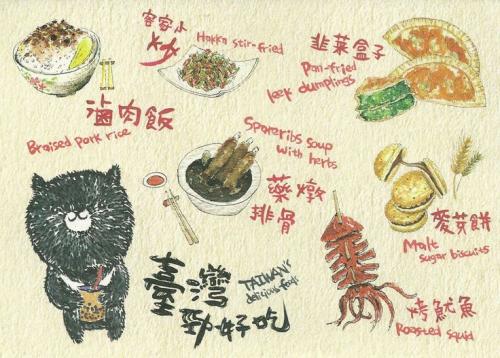 客家小
炒
Hakka stir-fried
韭菜盒子
Pan-fried
leek dumplings
滷肉飯
Braised pork rice
Spareribs soup
with herbs
藥燉
排骨
麥芽餅
Malt
sugar biscuits
臺灣
勁好吃
TAIWAN's
delicious food
烤魷魚
Roasted squid